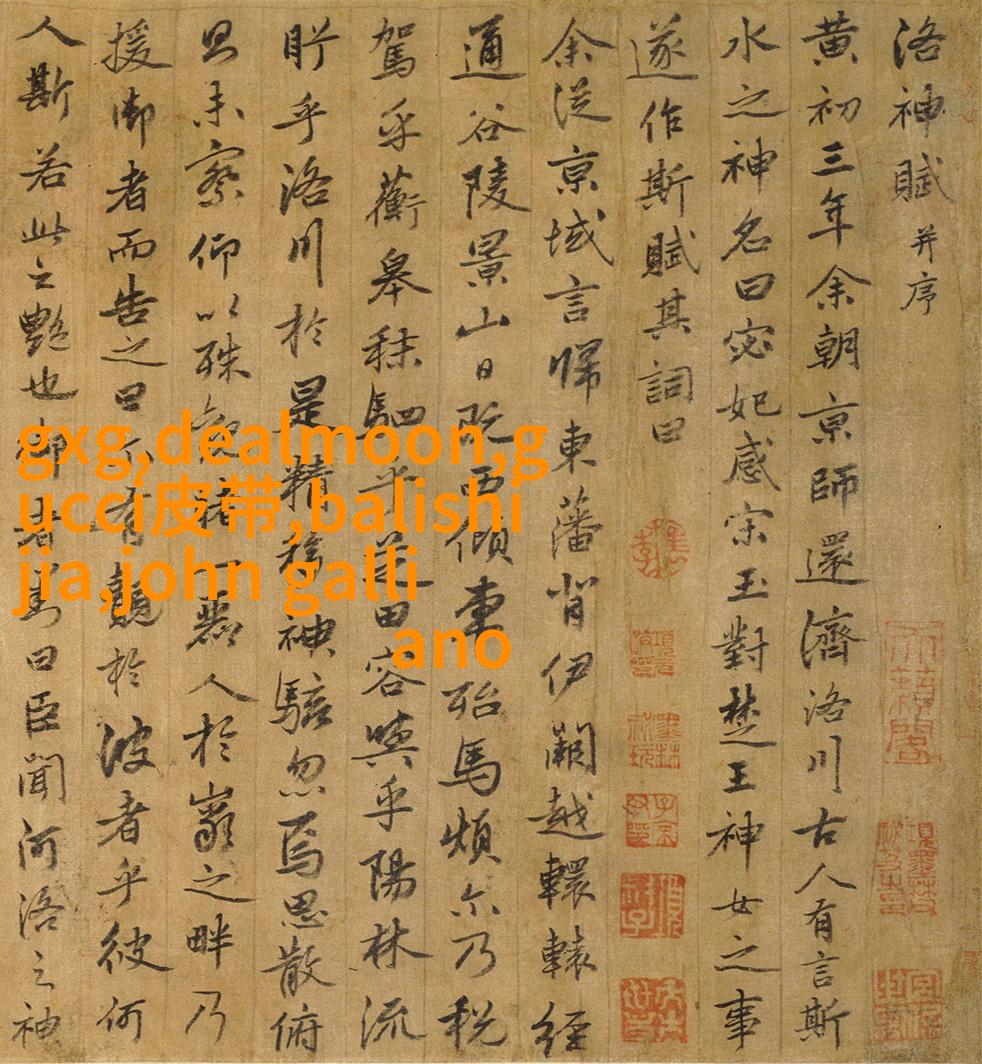 洛神賦并序
黄初三年余朝京師還濟洛川古人有言斯
水之神名曰宓妃感宋玉對楚王神女之事
遂作斯賦其詞曰
余從京域言歸東藩背伊闕越轘轅經
通谷陵景山日既西傾車殆馬煩尒乃税
駕乎蘅皋秣駟乎芝田容與乎陽林流
眄乎洛川於是精移神駭忽焉思散俯
則未察仰以殊觀睹一麗人於巖之畔乃
援御者而告之曰尒有覿於彼者乎彼何
人斯若此之艷也御者對曰臣聞河洛之神
gxg,dealmoon,g
ucci皮带,balishi
jia,john galli
ano